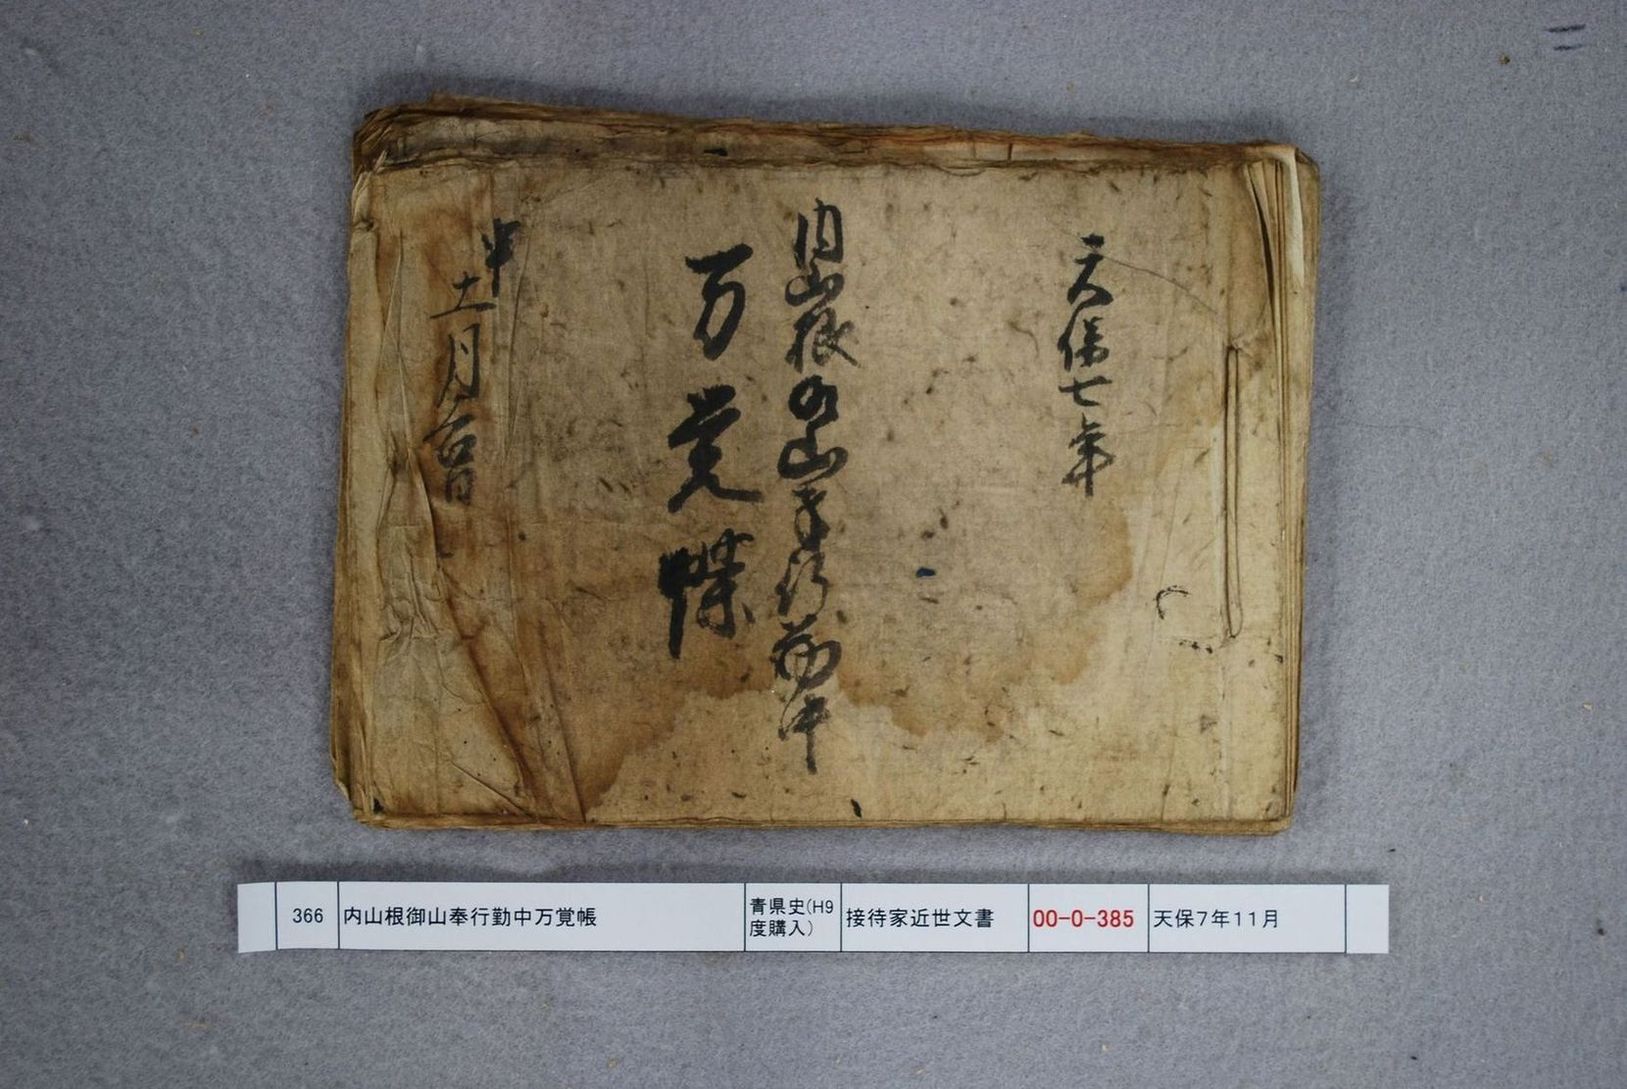 天保七年
内山根御山奉行勤中
万覚牒
申
十一月吉日
366
内山根御山奉行勤中万覚帳
青県史(H9
度購入)
接待家近世文書
00-0-385
天保7年11月